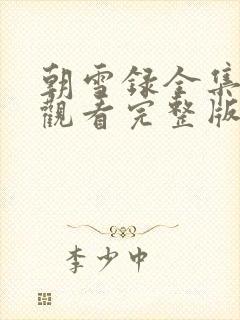 朝雪録全集
觀看完整版
李少中